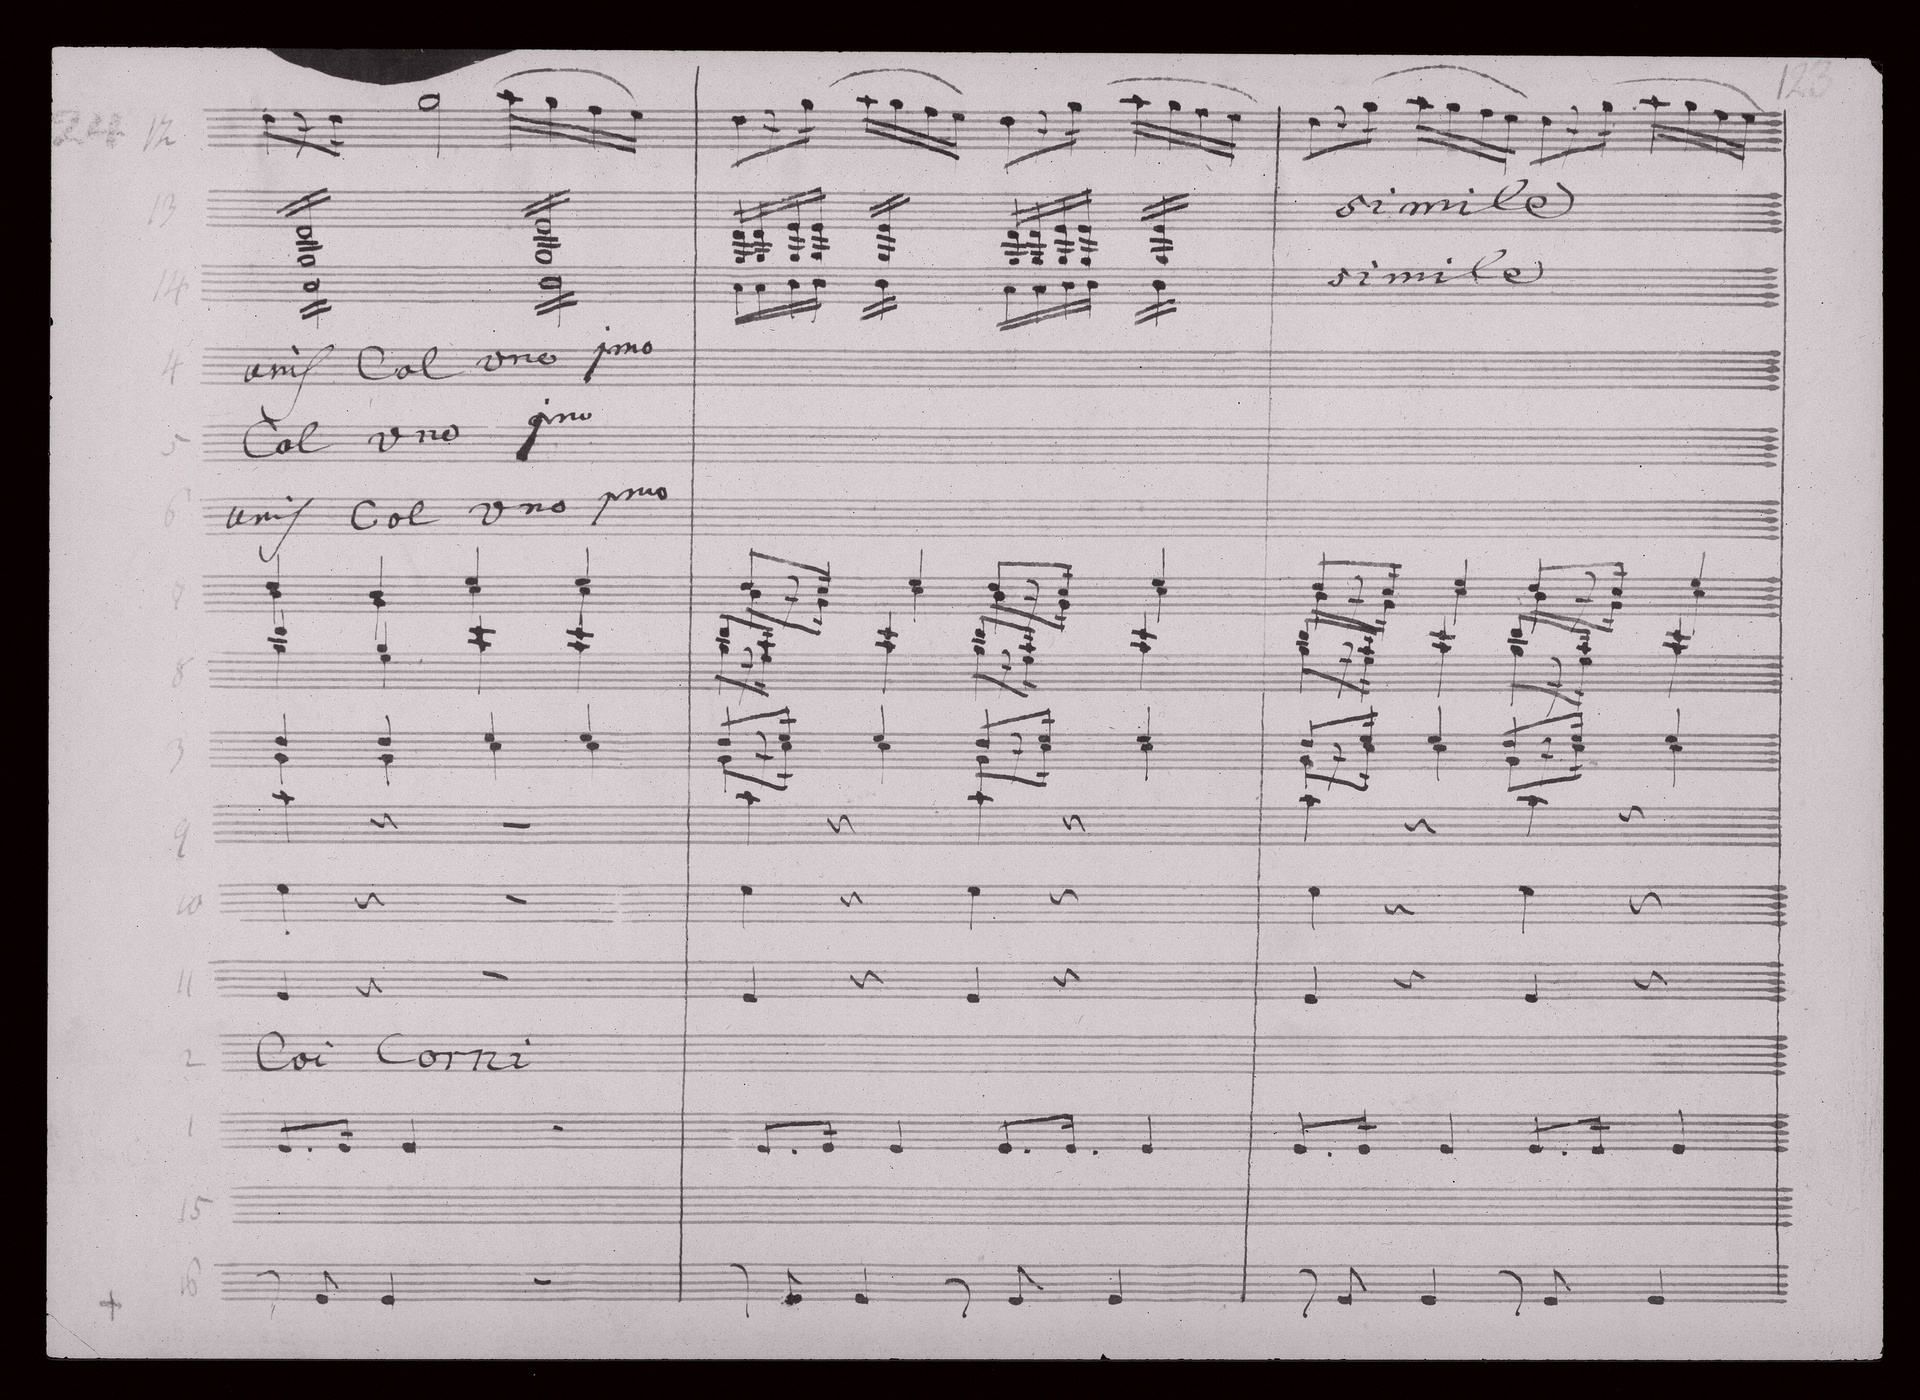 123
12
13 simile
14 simile
4 unis Col vno pmo
5 Col vno pmo
6 unis Col vno pmo
8
3
9
10
11
2 Coi Corni
1
15
16